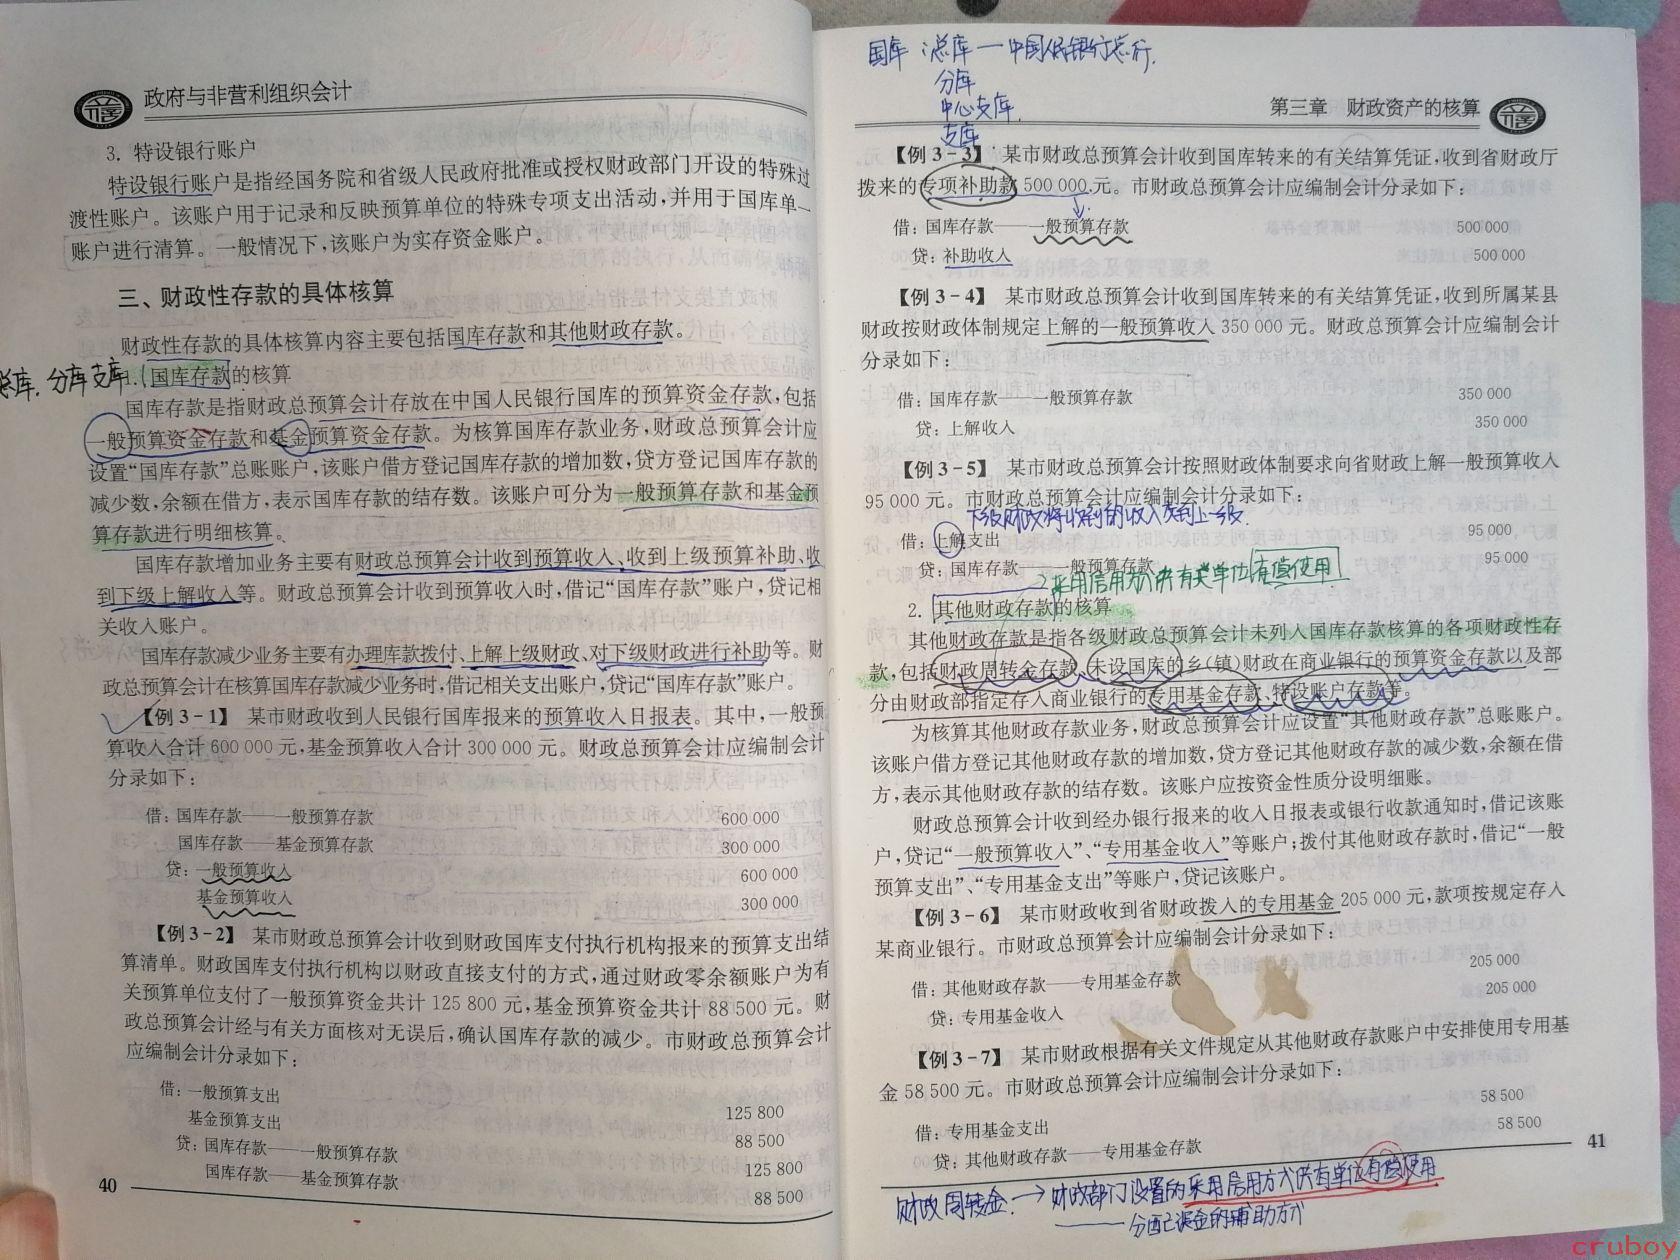 政府与非营利组织会计
3. 特设银行账户
特设银行账户是指经国务院和省级人民政府批准或授权财政部门开设的特殊过
渡性账户。该账户用于记录和反映预算单位的特殊专项支出活动，并用于国库单一
账户进行清算。一般情况下，该账户为实存资金账户。
三、财政性存款的具体核算
财政性存款的具体核算内容主要包括国库存款和其他财政存款。
总库、分库支库
1. 国库存款的核算
国库存款是指财政总预算会计存放在中国人民银行国库的预算资金存款，包括
一般预算资金存款和基金预算资金存款。为核算国库存款业务，财政总预算会计应
设置“国库存款”总账账户，该账户借方登记国库存款的增加数，贷方登记国库存款的
减少数，余额在借方，表示国库存款的结存数。该账户可分为一般预算存款和基金预
算存款进行明细核算。
国库存款增加业务主要有财政总预算会计收到预算收入、收到上级预算补助、收
到下级上解收入等。财政总预算会计收到预算收入时，借记“国库存款”账户，贷记相
关收入账户。
国库存款减少业务主要有办理库款拨付、上解上级财政、对下级财政进行补助等。财
政总预算会计在核算国库存款减少业务时，借记相关支出账户，贷记“国库存款”账户。
【例 3-1】 某市财政收到人民银行国库报来的预算收入日报表。其中，一般预
算收入合计 600 000 元，基金预算收入合计 300 000 元。财政总预算会计应编制会计
分录如下：
借：国库存款——一般预算存款 600 000
国库存款——基金预算存款 300 000
贷：一般预算收入 600 000
基金预算收入 300 000
【例 3-2】 某市财政总预算会计收到财政国库支付执行机构报来的预算支出结
算清单。财政国库支付执行机构以财政直接支付的方式，通过财政零余额账户为有
关预算单位支付了一般预算资金共计 125 800 元，基金预算资金共计 88 500 元。财
政总预算会计经与有关方面核对无误后，确认国库存款的减少。市财政总预算会计
应编制会计分录如下：
借：一般预算支出 125 800
基金预算支出 88 500
贷：国库存款——一般预算存款 125 800
国库存款——基金预算存款 88 500
40
国库：总库—中国人民银行总行.
分库
中心支库.
支库
第三章 财政资产的核算
【例 3-3】 某市财政总预算会计收到国库转来的有关结算凭证，收到省财政厅
拨来的专项补助款 500 000 元。市财政总预算会计应编制会计分录如下：
借：国库存款——一般预算存款 500 000
贷：补助收入 500 000
【例 3-4】 某市财政总预算会计收到国库转来的有关结算凭证，收到所属某县
财政按财政体制规定上解的一般预算收入 350 000 元。财政总预算会计应编制会计
分录如下：
借：国库存款——一般预算存款 350 000
贷：上解收入 350 000
【例 3-5】 某市财政总预算会计按照财政体制要求向省财政上解一般预算收入
95 000 元。市财政总预算会计应编制会计分录如下：
下级财政将收到的收入交到上一级.
借：上解支出 95 000
贷：国库存款——一般预算存款 95 000
采用信用方式供有关单位有偿使用
2. 其他财政存款的核算
其他财政存款是指各级财政总预算会计未列入国库存款核算的各项财政性存
款，包括财政周转金存款、未设国库的乡（镇）财政在商业银行的预算资金存款以及部
分由财政部指定存入商业银行的专用基金存款、特设账户存款等。
为核算其他财政存款业务，财政总预算会计应设置“其他财政存款”总账账户。
该账户借方登记其他财政存款的增加数，贷方登记其他财政存款的减少数，余额在借
方，表示其他财政存款的结存数。该账户应按资金性质分设明细账。
财政总预算会计收到经办银行报来的收入日报表或银行收款通知时，借记该账
户，贷记“一般预算收入”、“专用基金收入”等账户；拨付其他财政存款时，借记“一般
预算支出”、“专用基金支出”等账户，贷记该账户。
【例 3-6】 某市财政收到省财政拨入的专用基金 205 000 元，款项按规定存入
某商业银行。市财政总预算会计应编制会计分录如下：
借：其他财政存款——专用基金存款 205 000
贷：专用基金收入 205 000
【例 3-7】 某市财政根据有关文件规定从其他财政存款账户中安排使用专用基
金 58 500 元。市财政总预算会计应编制会计分录如下：
借：专用基金支出 58 500
贷：其他财政存款——专用基金存款 58 500
41
财政周转金. → 财政部门设置的采用信用方式供有单位有偿使用
分配资金的辅助方式
cruboy